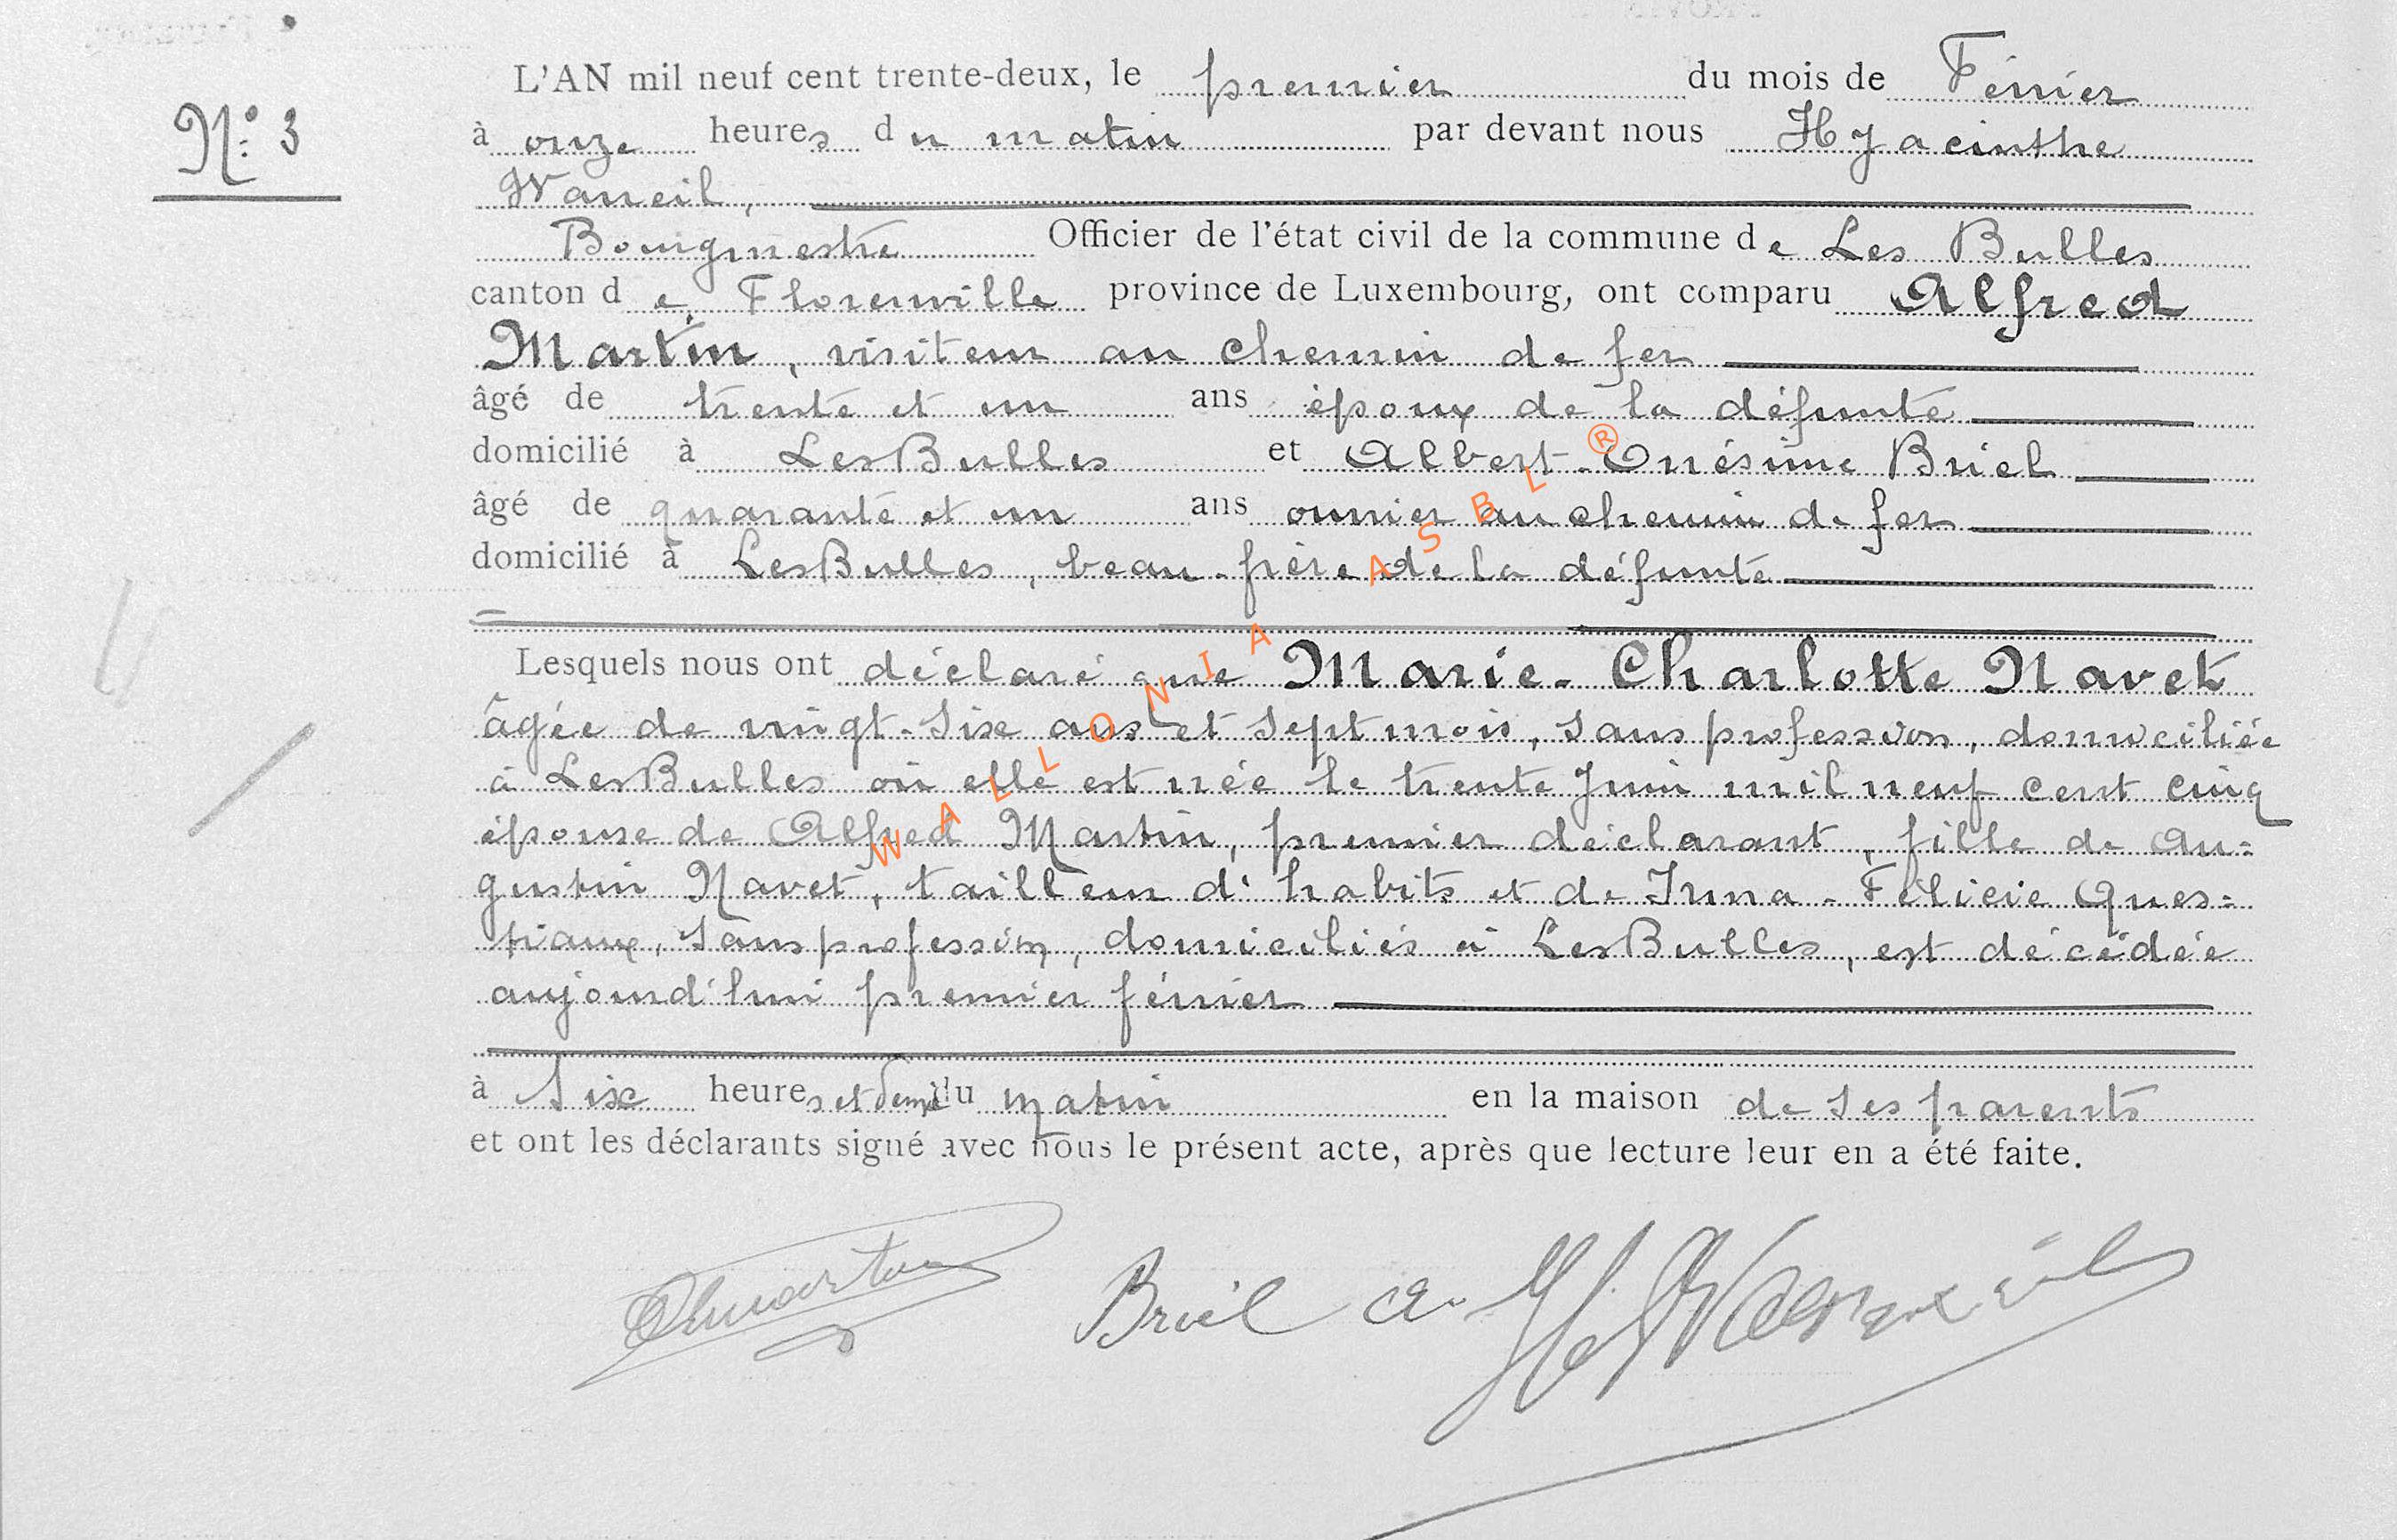 L'AN mil neuf cent trente-deux, le premier du mois de Février
N° 3
à onze heures du matin par devant nous Hyacinthe
Waneil,
Bourgmestre Officier de l'état civil de la commune de Les Bulles
canton de Florenville province de Luxembourg, ont comparu Alfred
Martin, visiteur au chemin de fer
âgé de trente et un ans époux de la défunte
domicilié à Les Bulles et Albert-Onésime Briel
âgé de quarante et un ans ouvrier au chemin de fer
domicilié à Les Bulles, beau-frère de la défunte
Lesquels nous ont déclaré que Marie-Charlotte Navet
âgée de vingt-six ans et sept mois, sans profession, domiciliée
à Les Bulles où elle est née le trente Juin mil neuf cent cinq
épouse de Alfred Martin, premier déclarant, fille de Au=
gustin Navet, tailleur d'habits et de Irma-Félicie Ques=
tiaux, sans profession, domiciliés à Les Bulles, est décédée
aujourd'hui premier février
à six heures et demie du matin en la maison de ses parents
et ont les déclarants signé avec nous le présent acte, après que lecture leur en a été faite.
AMartin Briel A. H. Waneil
WALLONIA ASBL ®